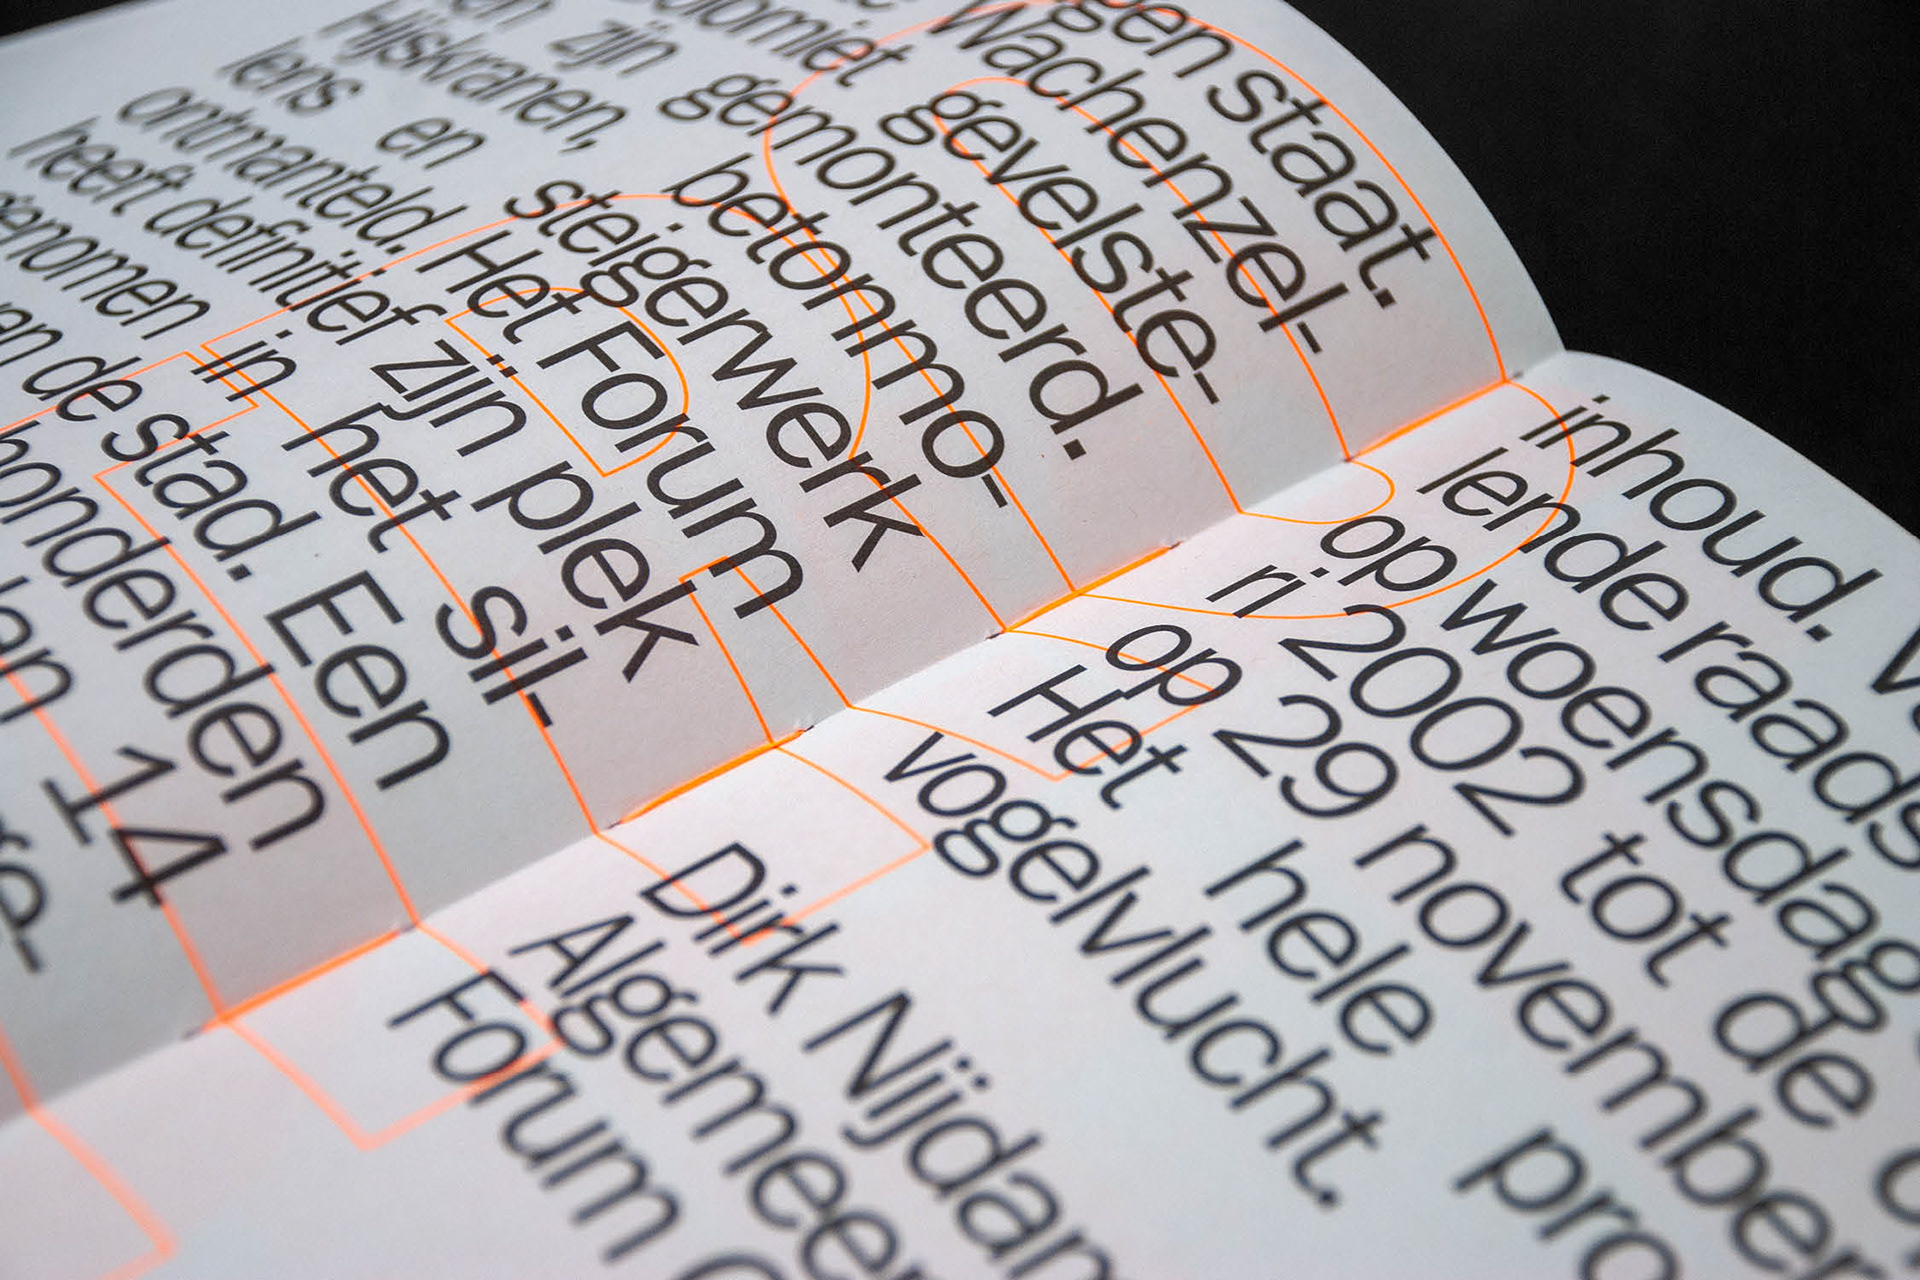 gen staat.
Wachenzel-
gevelste-
zijn gemonteerd.
Hijskranen, betonmo-
lens en steigerwerk
ontmanteld. Het Forum
heeft definitief zijn plek
genomen in het sil-
de stad. Een
honderden
14
inhoud.
lende raads
op woensdag
ri 2002 tot de
op 29 november
Het hele pro
vogelvlucht.
Dirk Nijdam
Algemeen
Forum